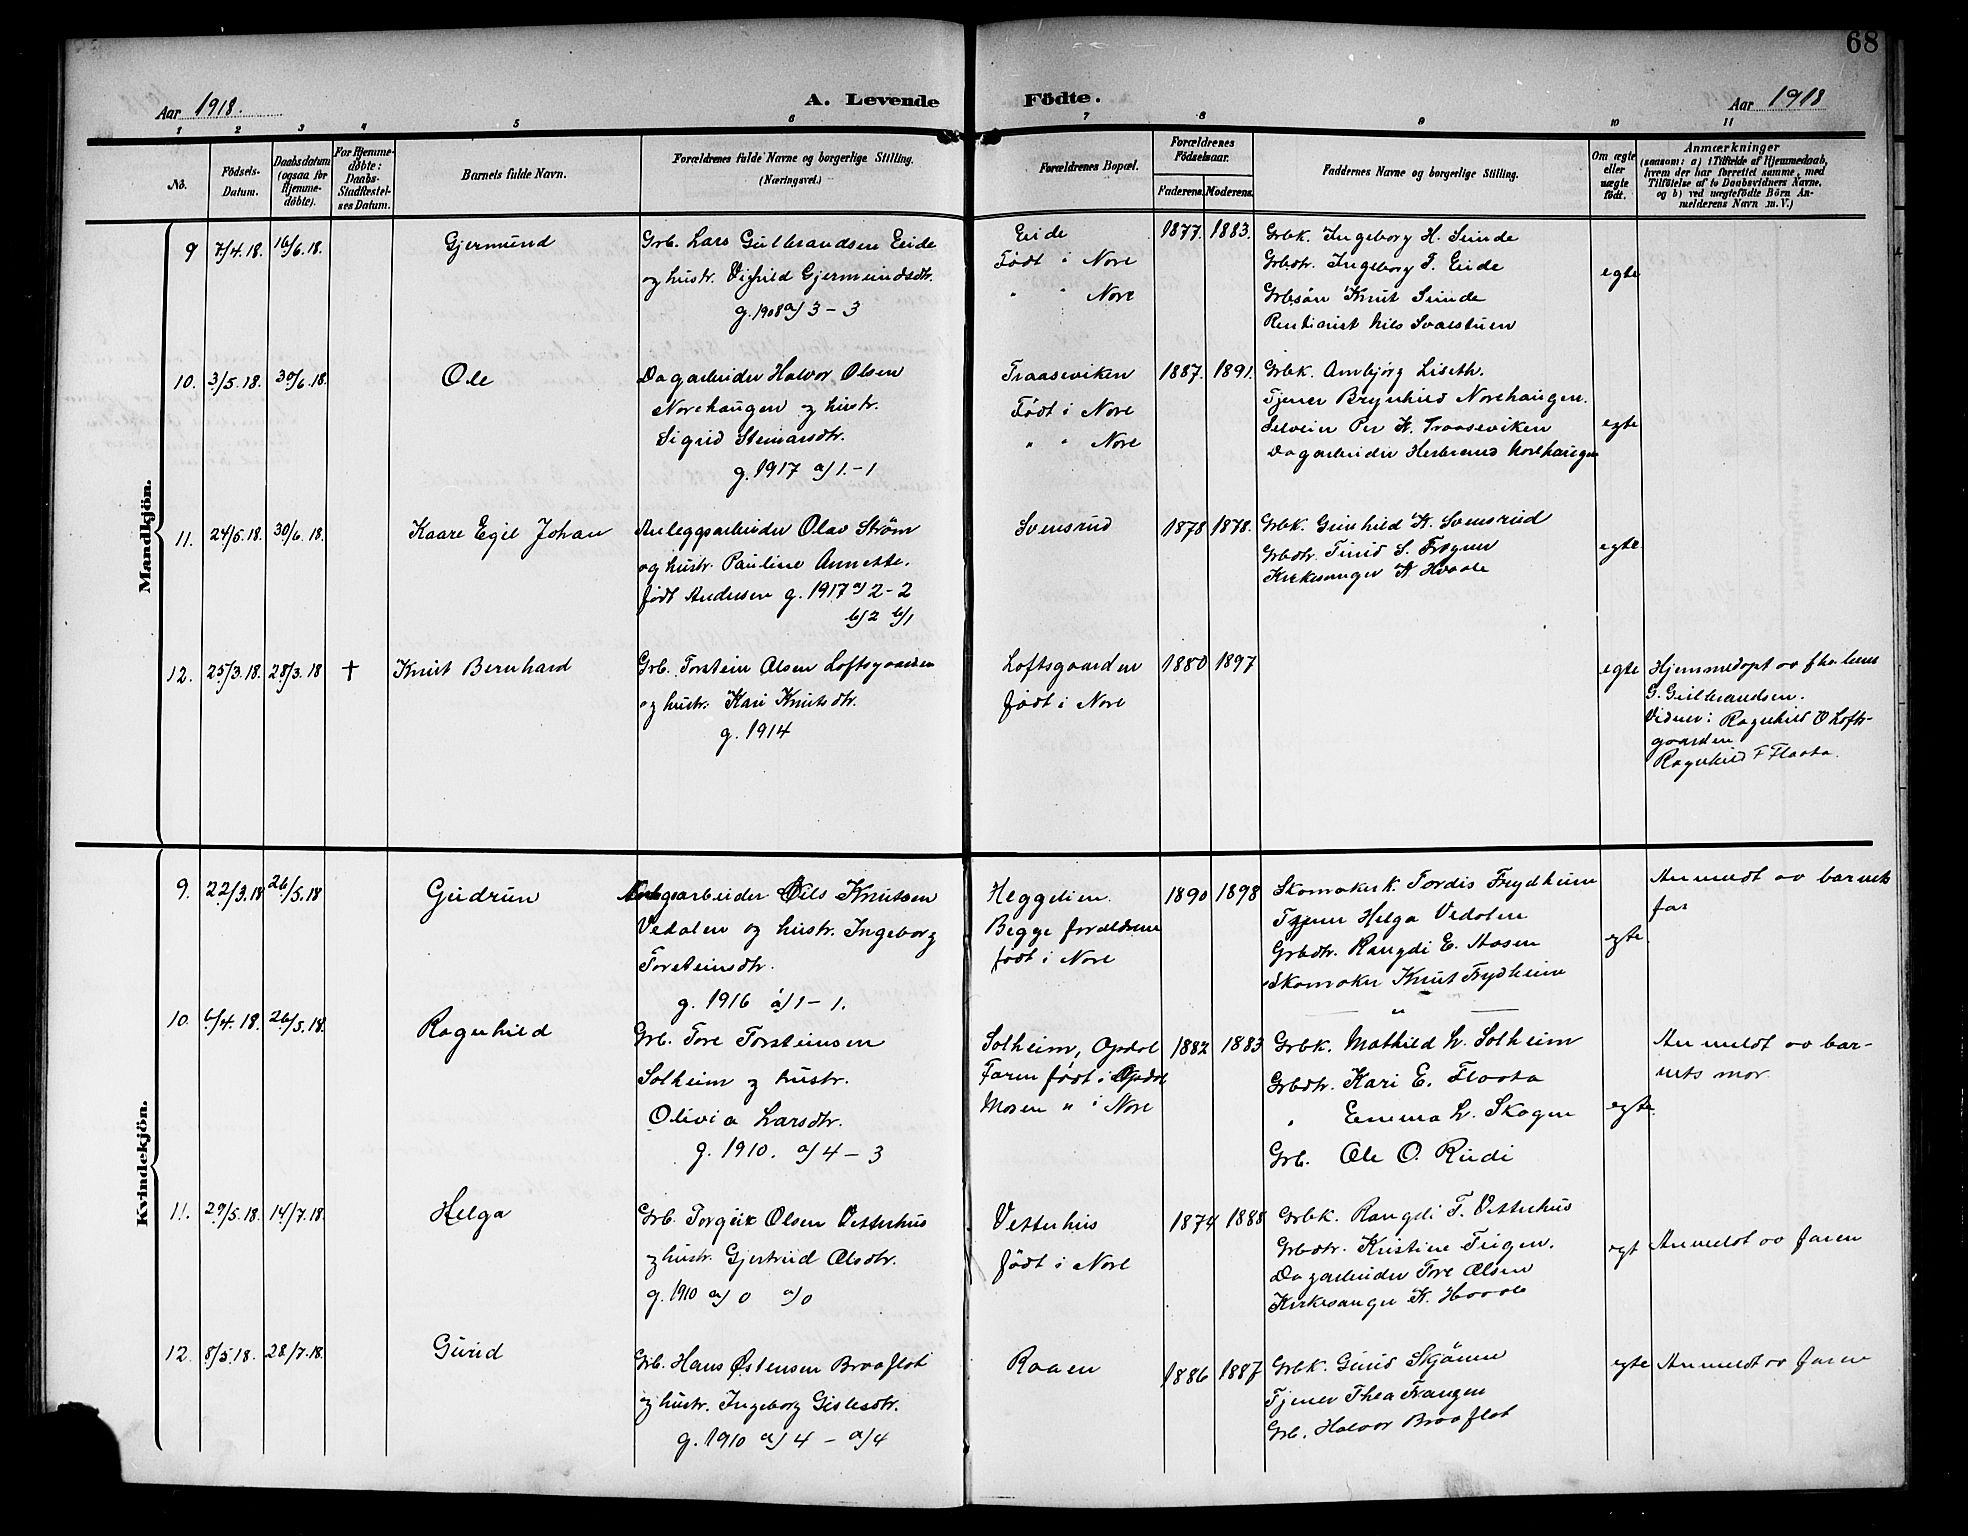 68
Aar 1918.
A. Levende Födte.
Aar 1918
1 2 3 4 5 6 7 8 9 10 11
No.
Födsels-
Datum.
Daabsdatum
(ogsaa for
Hjemme-
döbte).
For Hjemme-
döbte:
Daabs-
Stadfæstel-
ses Datum.
Barnets fulde Navn.
Forældrenes fulde Navne og borgerlige Stilling.
(Næringsvei.)
Forældrenes Bopæl.
Forældrenes
Födselsaar.
Faderens. Moderens.
Faddernes Navne og borgerlige Stilling.
Om ægte
eller
uægte
födt.
Anmærkninger
(saasom: a) i Tilfælde af Hjemmedaab,
hvem der har forrettet samme, med
Tilföielse af to Daabsvidners Navne,
og b) ved uægtefödte Börn An-
melderens Navn m. V.)
Mandkjön.
9 7/4.18. 16/6.18. Gjermund
Grb. Lars Gulbrandsen Eide
og hustr. Gjermundsdtr.
g. 1908 a/3 - 3
Eide
Født i Nore
" " Nore
1877. 1883.
Grbk. Ingeborg H. Sunde
Grbdtr. Ingeborg T. Eide
Grbsøn Knut Sunde
Rentionist Nils Svalstuen
egte
10. 3/5.18. 30/6.18. Ole
Dagarbeider Halvor Olsen
Norehaugen og hustr.
Sigrid Steinarsdtr.
g. 1917 a/1. - 1
Traaseviken
Født i Nore
" " Nore
1887. 1891.
Grbk. Ambjørg Liseth.
Tjener Brynhild Norehaugen.
Selveier Per K. Traaseviken
Dagarbeider Herbrand Norehaugen
egte
11. 24/5.18. 30/6.18. Kaare Egil Johan
Anleggsarbeider Olav Strøm
og hustr. Pauline Annette.
født Andersen g. 1917 a/2 - 2
b/2 b/1
Svensrud
1878 1878.
Grbk. Gunhild K. Svensrud
Grbdtr. Turid S. Frogner
Kirkesanger K. Hvaale
egte
12. 25/3.18. 28/3.18 + Knut Bernhard
Grb. Torstein Olsen Loftsgaarden
og hustr. Kari Knutsdtr.
g. 1914
Loftsgaarden
født i Nore
1880 1897
egte
Hjemmedøpt av
G. Gulbrandsen.
Vidner: Ragnhild O Lofts-
gaarden
Ragnhild T Flaata.
Kvindekjön.
9. 22/3.18 26/5.18 Gudrun
Nils Knutsen
Vedalen og hustr. Ingeborg
Torsteinsdtr.
g. 1916 a/1 - 1.
Heggelien.
Begge forældrene
født i Nore
1890 1898
Skomakerk. Tordis Frydheim
Tjener Helga Vedalen
Grbdtr. Rangdi E. Aasen
Skomaker Knut Frydheim
"
egte
Anmeldt av barnets
far
10. 6/4.18. 26/5.18. Ragnhild
Grb. Tore Torsteinsen
Solheim og hustr.
Olivia Larsdtr.
g. 1910. a/4 - 3
Solheim, Opdal
Faren født i Opdal
Moren " i Nore
1882 1883
Grbk. Mathild L. Solheim
Grbdtr. Kari E. Flaata
" Emma L. Skogen
Grb. Ole O. Rudi
egte.
Anmeldt av bar-
nets mor.
11. 29/5.18. 14/7.18. Helga
Grb. Torgeir Olsen Vetterhus
og hustr. Gjertrud Olsdtr.
g. 1910 a/0 a/0
Vetterhus
født i Nore
1874 1888
Grbk. Rangdi T. Vetterhus
Grbdtr. Kristine Teigen.
Dagarbeider Tore Olsen
Kirkesanger K. Hvaale
egt
Anmeldt av faren
12. 8/5.18. 28/7.18. Gurid
Grb. Hans Østensen Braaflot
og hustr. Ingeborg Gislesdtr.
g. 1910 a/4 - a/4
Raaen
1886 1887
Grbk. Gurid Skjønne
Tjener Thea Frangen
Grb. Halvor Braaflot
egte
Anmeldt av faren